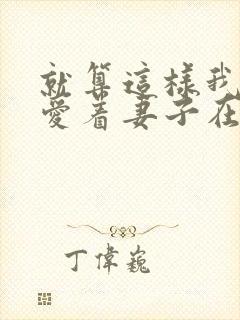 就算這樣我
愛着妻子在
丁偉巍